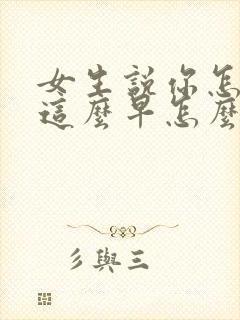 女生說你怎
這麼早怎麼
彡與三